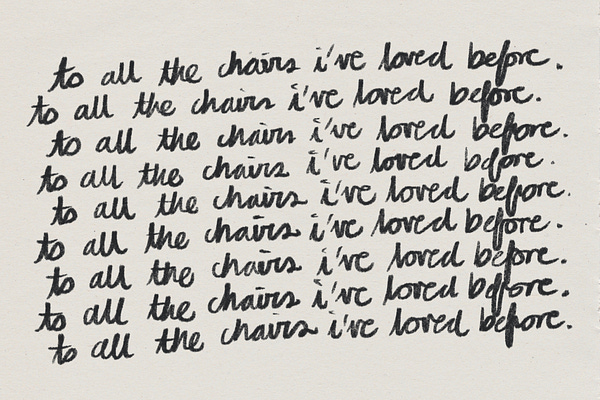 to all the chairs i've loved before.
to all the chairs i've loved before.
to all the chairs i've loved before.
to all the chairs i've loved before.
to all the chairs i've loved before.
to all the chairs i've loved before.
to all the chairs i've loved before.
to all the chairs i've loved before.
to all the chairs i've loved before.